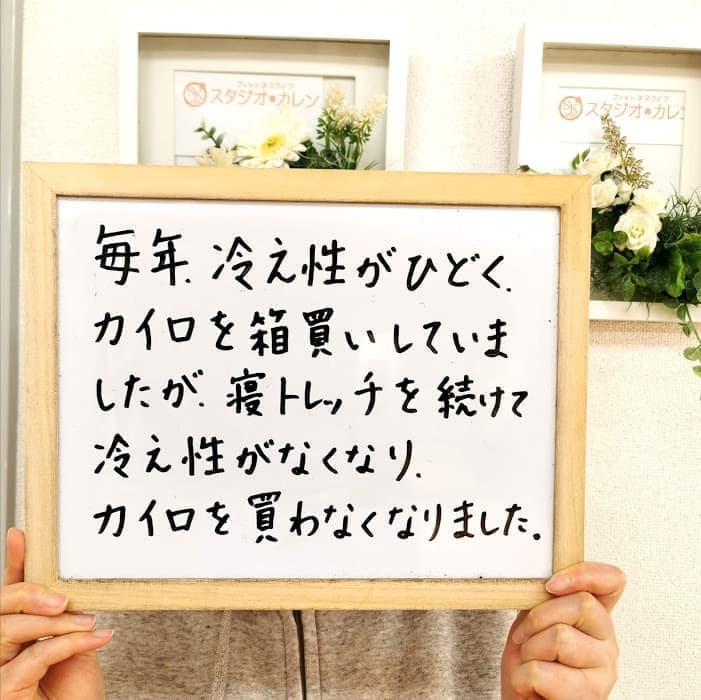 フィットネスライフ
スタジオ●カレン
フィットネスライフ
スタジオ●カレン
毎年、冷え性がひどく、
カイロを箱買いしていま
したが、寝トレッチを続けて
冷え性がなくなり、
カイロを買わなくなりました。